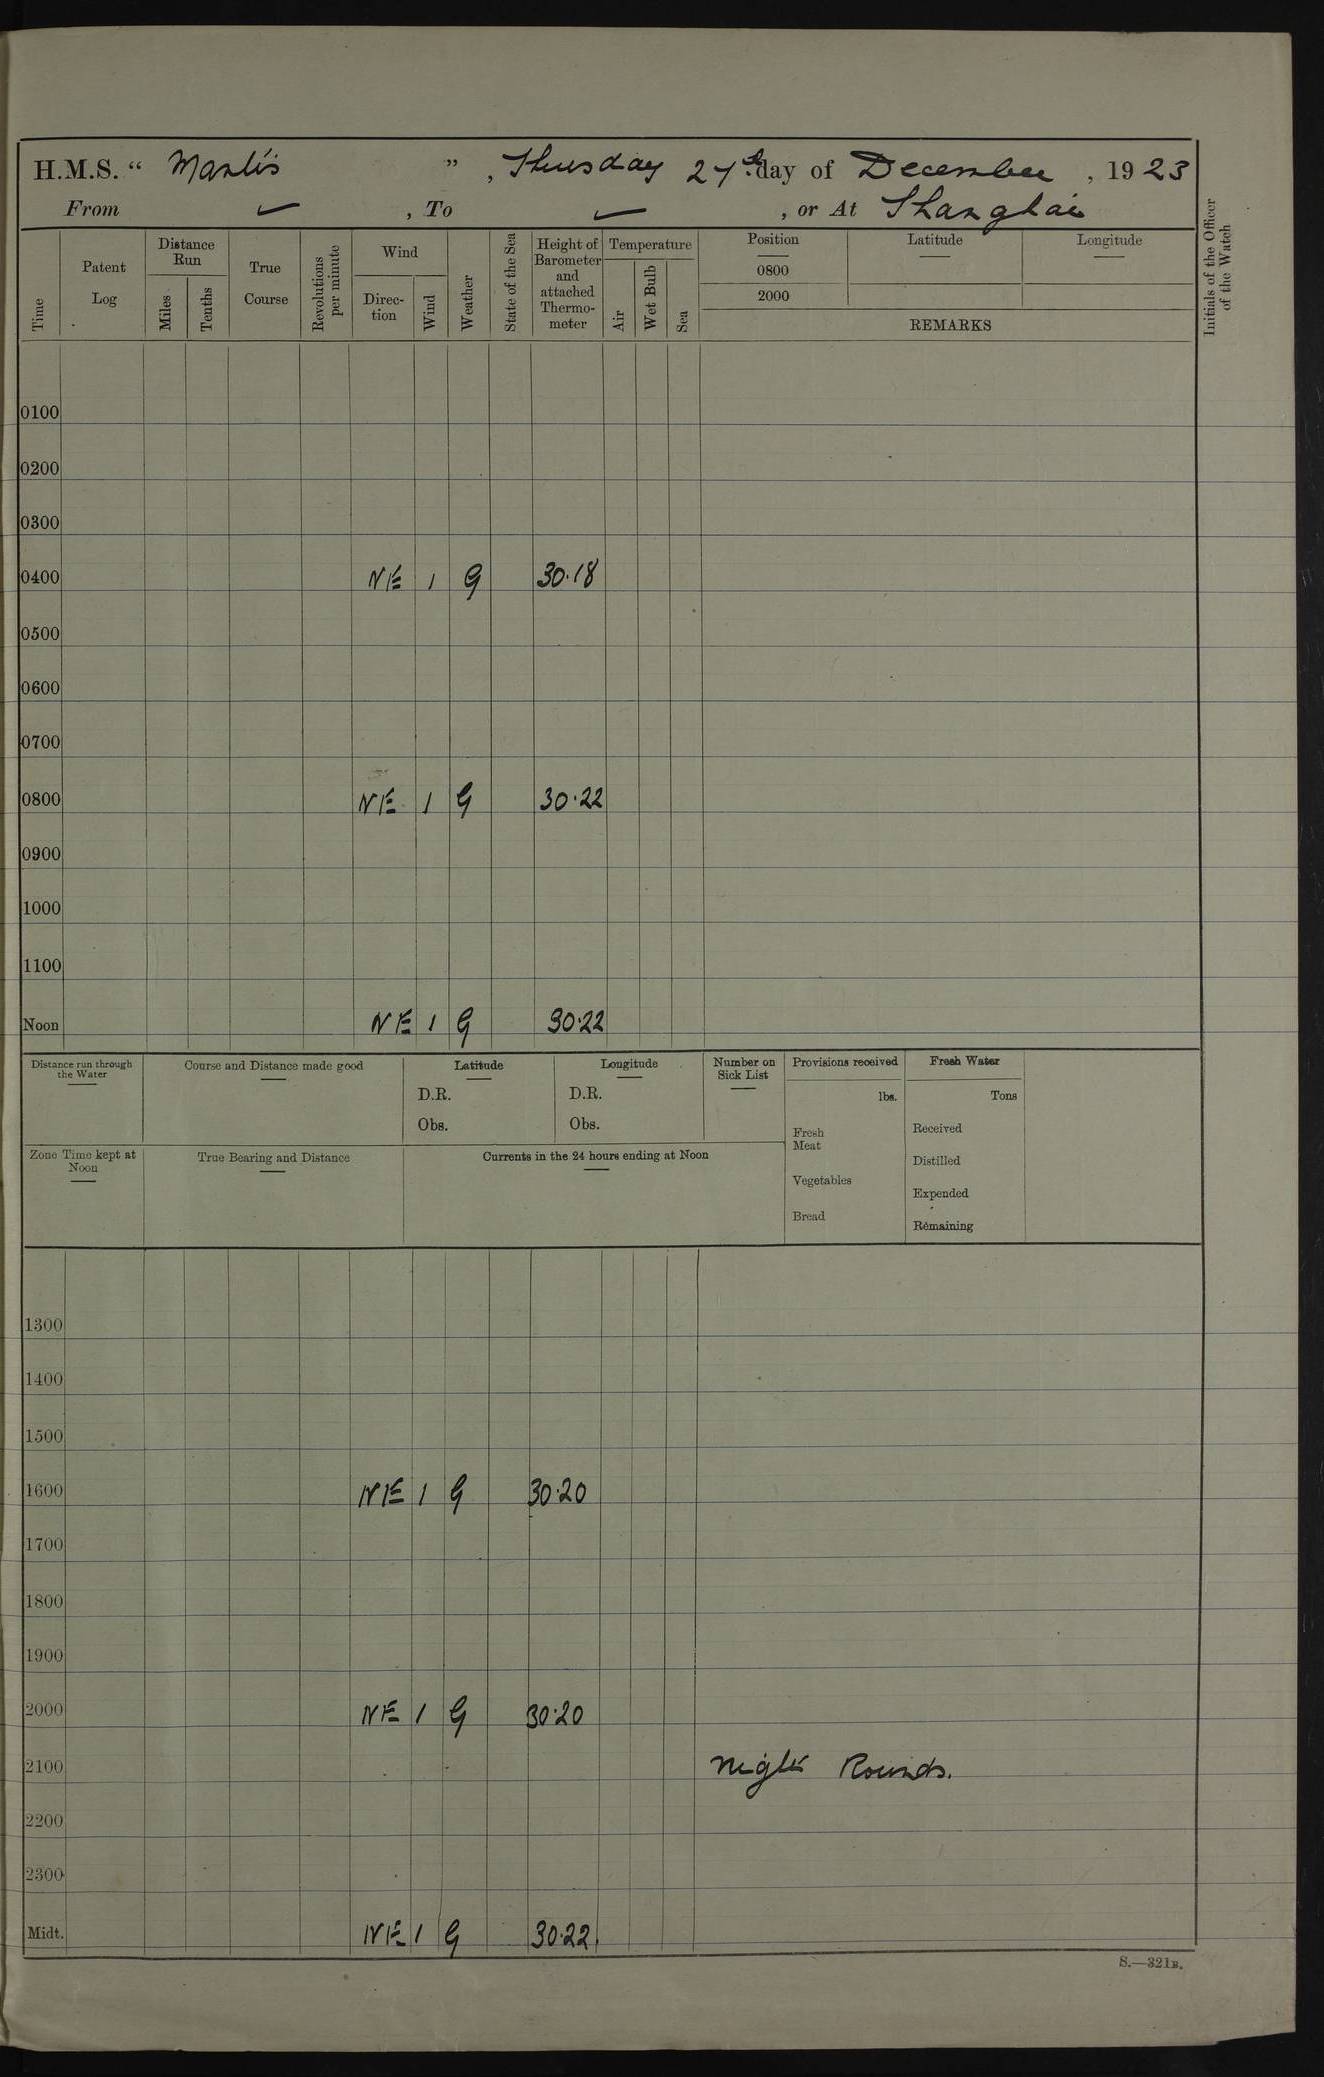 H.M.S. “ Mantis ”, Thursday 27th day of December, 1923
From ✓, To ✓, or At Shanghai
Time
Patent Log
Distance Run
Miles
Tenths
True Course
Revolutions per minute
Wind
Direc-tion
Wind
Weather
State of the Sea
Height of Barometer and attached Thermo-meter
Temperature
Air
Wet Bulb
Sea
Position
0800
2000
Latitude
Longitude
REMARKS
Initials of the Officer of the Watch
0100
0200
0300
0400 NE 1 G 30·18
0500
0600
0700
0800 NE 1 G 30·22
0900
1000
1100
Noon NE 1 G 30·22
Distance run through the Water
Course and Distance made good
Latitude
D.R.
Obs.
Longitude
D.R.
Obs.
Number on Sick List
Provisions received
lbs.
Fresh Meat
Vegetables
Bread
Fresh Water
Tons
Received
Distilled
Expended
Remaining
Zone Time kept at Noon
True Bearing and Distance
Currents in the 24 hours ending at Noon
1300
1400
1500
1600 NE 1 G 30·20
1700
1800
1900
2000 NE 1 G 30·20
2100 Night Rounds.
2200
2300
Midt. NE 1 G 30·22.
S.—321B.